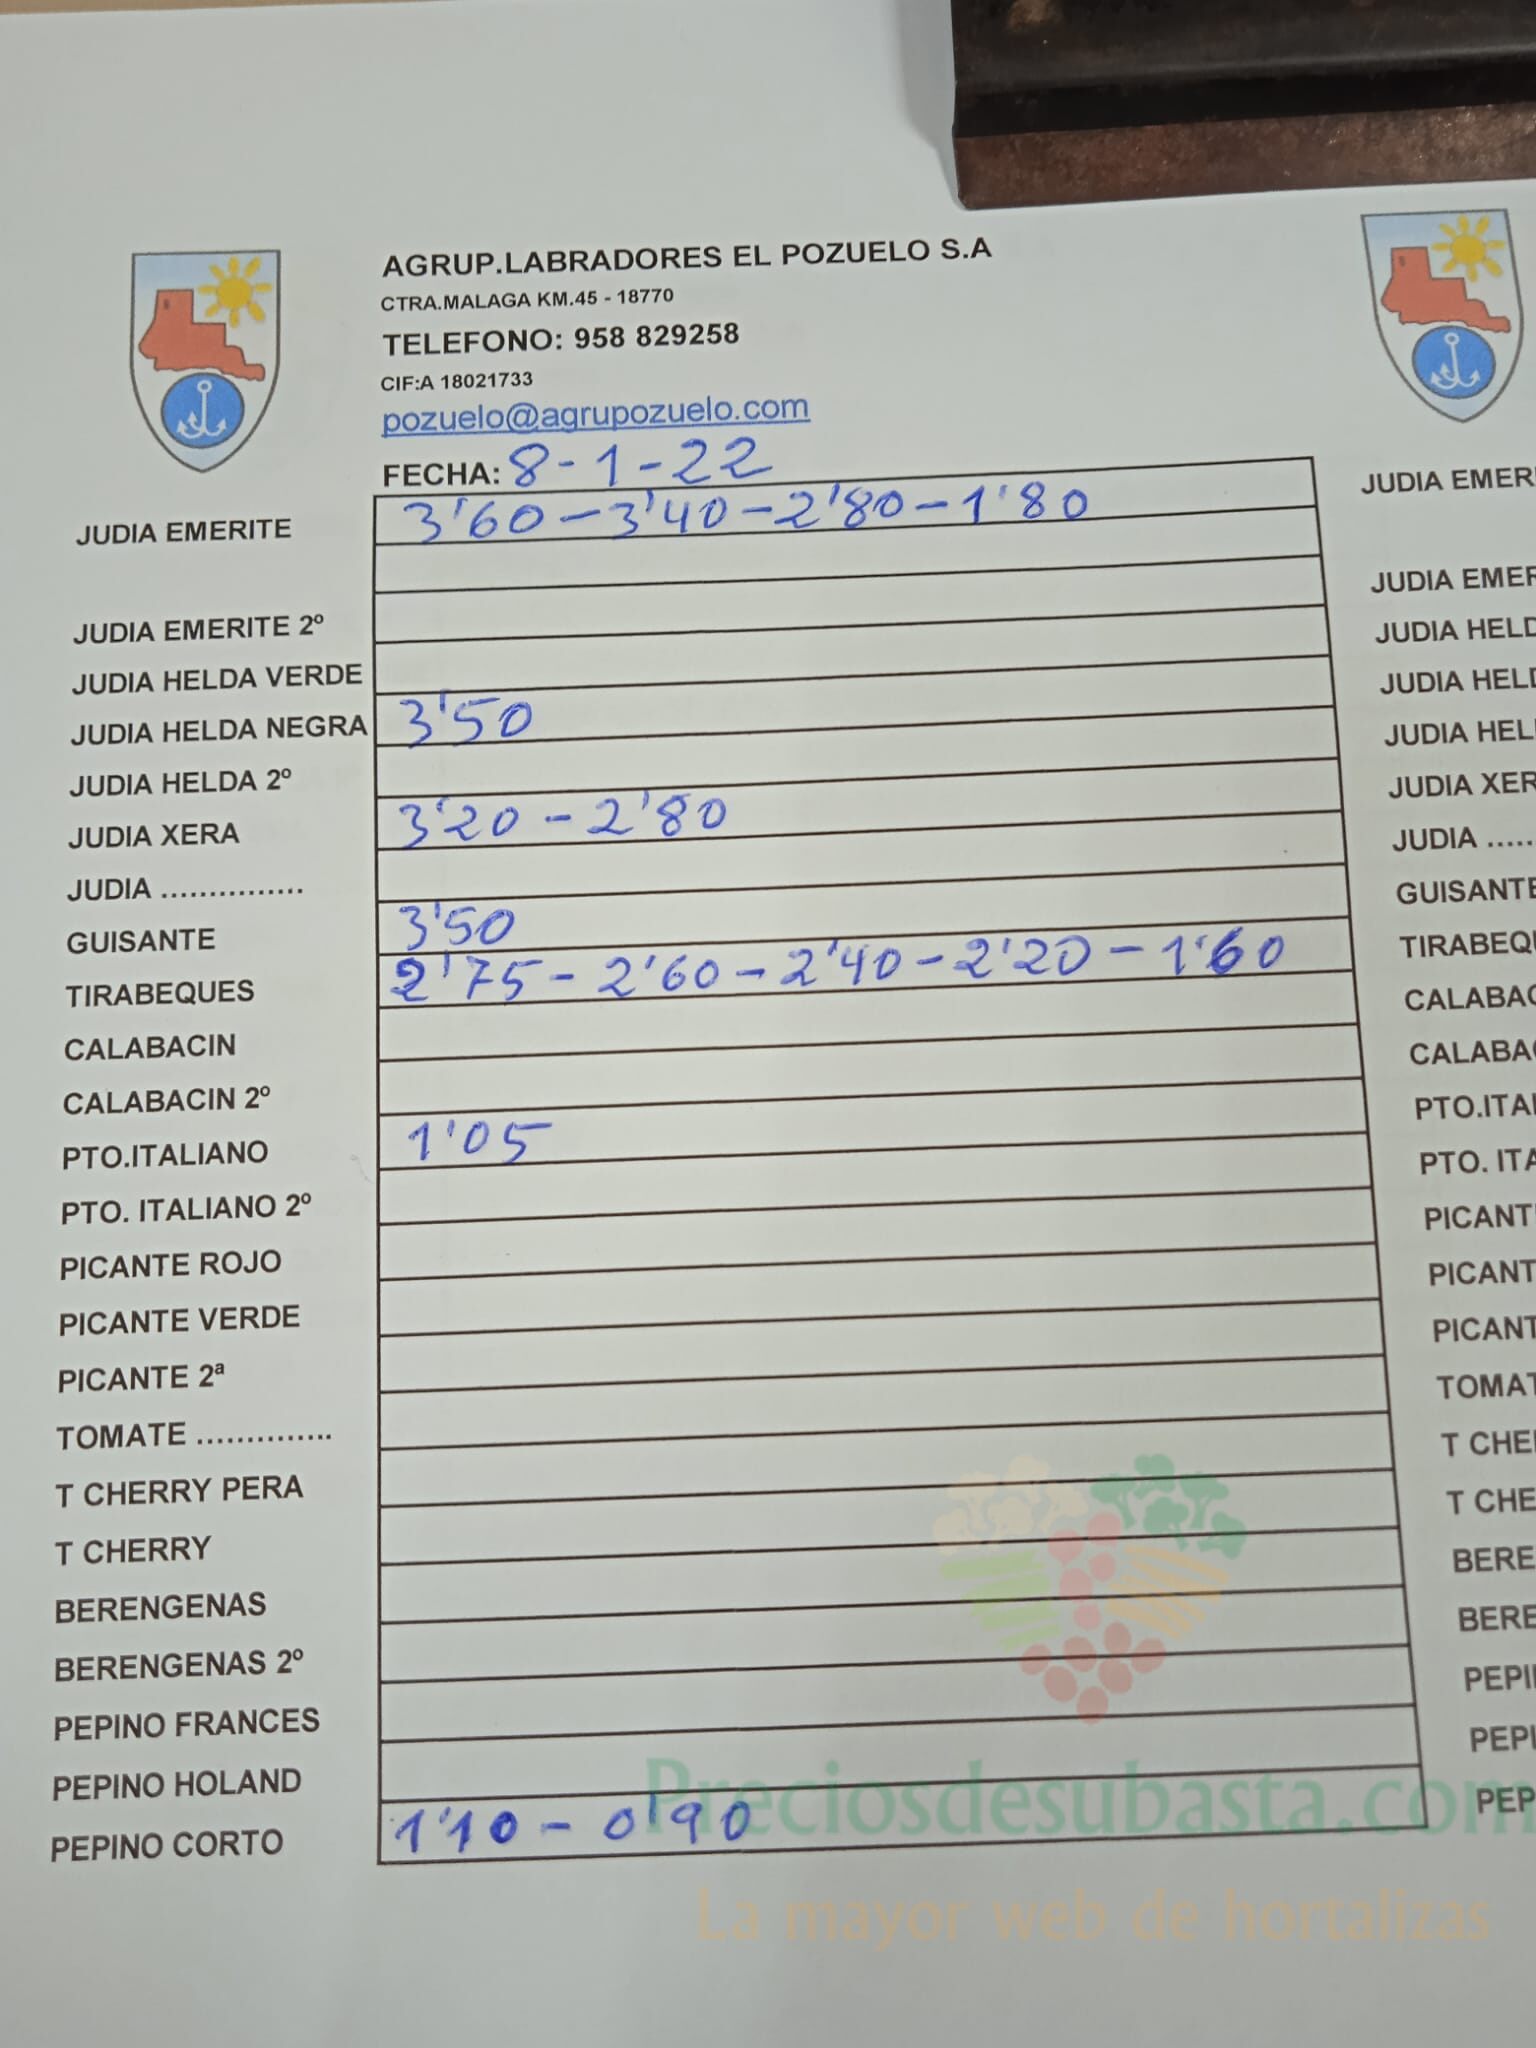 AGRUP.LABRADORES EL POZUELO S.A
CTRA.MALAGA KM.45 - 18770
TELEFONO: 958 829258
CIF:A 18021733
pozuelo@agrupozuelo.com
FECHA: 8-1-22
JUDIA EMERITE 3'60 - 3'40 - 2'80 - 1'80
JUDIA EMERITE 2º
JUDIA HELDA VERDE
JUDIA HELDA NEGRA 3'50
JUDIA HELDA 2º
JUDIA XERA 3'20 - 2'80
JUDIA ...............
GUISANTE 3'50
TIRABEQUES 2'75 - 2'60 - 2'40 - 2'20 - 1'60
CALABACIN
CALABACIN 2º
PTO.ITALIANO 1'05
PTO. ITALIANO 2º
PICANTE ROJO
PICANTE VERDE
PICANTE 2ª
TOMATE ..............
T CHERRY PERA
T CHERRY
BERENGENAS
BERENGENAS 2º
PEPINO FRANCES
PEPINO HOLAND
PEPINO CORTO 1'10 - 0'90
JUDIA EMER
JUDIA EMER
JUDIA HELD
JUDIA HELD
JUDIA HEL
JUDIA XER
JUDIA .....
GUISANTE
TIRABEQU
CALABAC
CALABAC
PTO.ITAL
PTO. ITA
PICANT
PICANT
PICANT
TOMAT
T CHE
T CHE
BERE
BERE
PEPI
PEPI
PEP
Preciosdesubasta.com
La mayor web de hortalizas